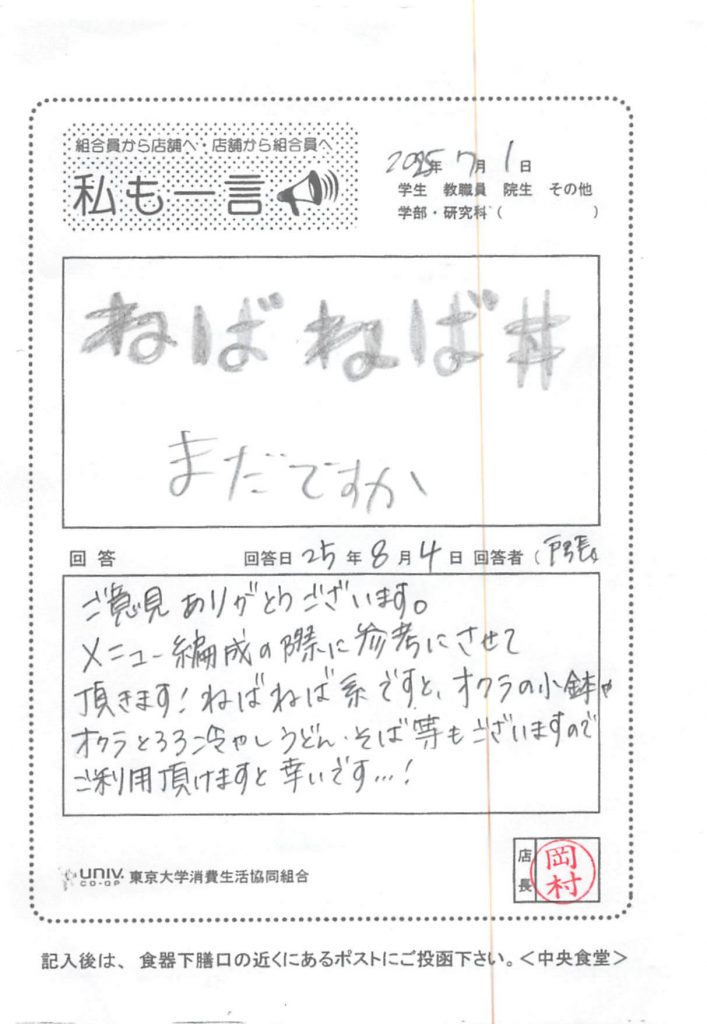 組合員から店舗へ・店舗から組合員へ
私も一言
2025年 7月 1日
学生 教職員 院生 その他
学部・研究科( )
ねばねば丼
まだですか
回答 回答日 25年 8月 4日 回答者(戸張)
ご意見ありがとうございます。
メニュー編成の際に参考にさせて
頂きます!ねばねば系ですと、オクラの小鉢や
オクラとろろ冷やしうどん・そば等もございますので
ご利用頂けますと幸いです…!
店長 岡村
UNIV. CO-OP 東京大学消費生活協同組合
記入後は、食器下膳口の近くにあるポストにご投函下さい。<中央食堂>